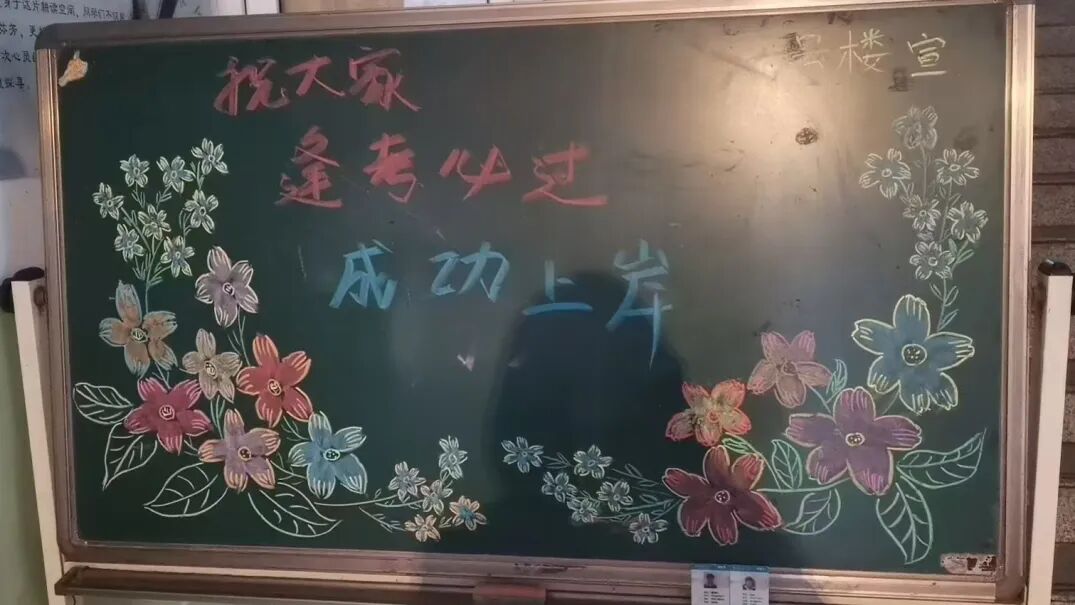 祝大家
逢考必过
成功上岸
楼宣